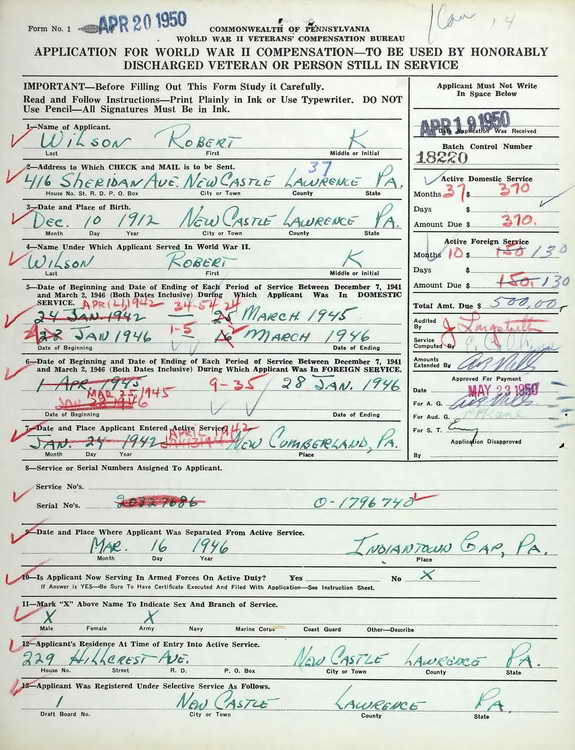 Form No. 1
APR 20 1950
COMMONWEALTH OF PENNSYLVANIA
WORLD WAR II VETERANS' COMPENSATION BUREAU
APPLICATION FOR WORLD WAR II COMPENSATION—TO BE USED BY HONORABLY
DISCHARGED VETERAN OR PERSON STILL IN SERVICE
IMPORTANT—Before Filling Out This Form Study it Carefully.
Read and Follow Instructions—Print Plainly in Ink or Use Typewriter. DO NOT
Use Pencil—All Signatures Must Be in Ink.
Applicant Must Not Write
In Space Below
APR 19 1950
Date Application Was Received
Batch Control Number
18220
1—Name of Applicant.
WILSON ROBERT K
Last First Middle or Initial
2—Address to Which CHECK and MAIL is to be Sent.
37
416 SHERIDAN AVE. NEW CASTLE LAWRENCE PA.
House No. St. R. D. P. O. Box City or Town County State
3—Date and Place of Birth.
DEC. 10 1912 NEW CASTLE LAWRENCE PA.
Month Day Year City or Town County State
4—Name Under Which Applicant Served In World War II.
WILSON ROBERT K
Last First Middle or Initial
5—Date of Beginning and Date of Ending of Each Period of Service Between December 7, 1941
and March 2, 1946 (Both Dates Inclusive) During Which Applicant Was In DOMESTIC
SERVICE.
APRIL 1, 1942 34-54-24
24 JAN. 1942 25 MARCH 1945
23 JAN 1946 1-5 MARCH 1946
Date of Beginning Date of Ending
6—Date of Beginning and Date of Ending of Each Period of Service Between December 7, 1941
and March 2, 1946 (Both Dates Inclusive) During Which Applicant Was In FOREIGN SERVICE.
1 APR. 1945 9-35 28 JAN. 1946
MAR 25 1945
Date of Beginning Date of Ending
7—Date and Place Applicant Entered Active Service.
APRIL 1, 1942
JAN. 24 1942 NEW CUMBERLAND, PA.
Month Day Year Place
Active Domestic Service
Months 37 $ 370
Days $
Amount Due $ 370.
Active Foreign Service
Months 10 $ 150 130
Days $
Amount Due $ 150. 130
Total Amt. Due $ 500.00
Audited
By
Service
Computed By
Amounts
Extended By
Approved For Payment
Date MAY 23 1950
For A. G.
For Aud. G.
For S. T.
Application Disapproved
By
8—Service or Serial Numbers Assigned To Applicant.
Service No's.
Serial No's. 20327686 O-1796740
9—Date and Place Where Applicant Was Separated From Active Service.
MAR. 16 1946 INDIANTOWN GAP, PA.
Month Day Year Place
10—Is Applicant Now Serving In Armed Forces On Active Duty? Yes No X
If Answer is YES—Be Sure To Have Certificate Executed And Filed With Application—See Instruction Sheet.
11—Mark "X" Above Name To Indicate Sex And Branch of Service.
X X
Male Female Army Navy Marine Corps Coast Guard Other—Describe
12—Applicant's Residence At Time of Entry Into Active Service.
229 HILLCREST AVE. NEW CASTLE LAWRENCE PA.
House No. Street R. D. P. O. Box City or Town County State
13—Applicant Was Registered Under Selective Service As Follows.
1 NEW CASTLE LAWRENCE PA.
Draft Board No. City or Town County State